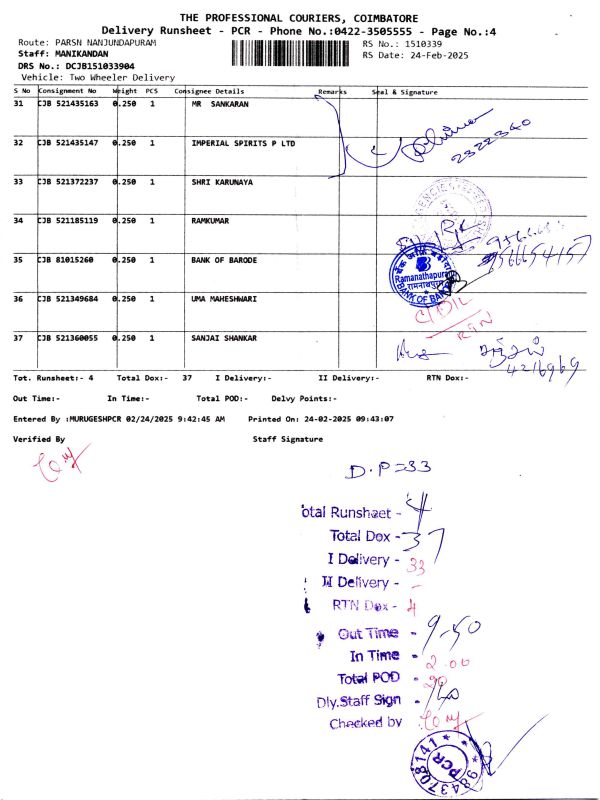 THE PROFESSIONAL COURIERS, COIMBATORE
Delivery Runsheet - PCR - Phone No.:0422-3505555 - Page No.:4
Route: PARSN NANJUNDAPURAM
RS No.: 1510339
Staff: MANIKANDAN
RS Date: 24-Feb-2025
DRS No.: DCJB151033904
Vehicle: Two Wheeler Delivery
S No Consignment No Weight PCS Consignee Details Remarks Seal & Signature
31 CJB 521435163 0.250 1 MR SANKARAN
32 CJB 521435147 0.250 1 IMPERIAL SPIRITS P LTD
2322360
33 CJB 521372237 0.250 1 SHRI KARUNAYA
34 CJB 521185119 0.250 1 RAMKUMAR
35 CJB 81015260 0.250 1 BANK OF BARODE
9566654157
Ramanathapuram
BANK OF BARODA
36 CJB 521349684 0.250 1 UMA MAHESHWARI
RTN
37 CJB 521360055 0.250 1 SANJAI SHANKAR
4216969
Tot. Runsheet:- 4 Total Dox:- 37 I Delivery:- II Delivery:- RTN Dox:-
Out Time:- In Time:- Total POD:- Delvy Points:-
Entered By :MURUGESHPCR 02/24/2025 9:42:45 AM Printed On: 24-02-2025 09:43:07
Verified By Staff Signature
D.P=33
otal Runsheet - 4
Total Dox - 37
I Delivery - 33
II Delivery - -
RTN Dox - 4
Out Time - 9-50
In Time - 2.00
Total POD -
Dly.Staff Sign -
Checked by
PCR
9843708141